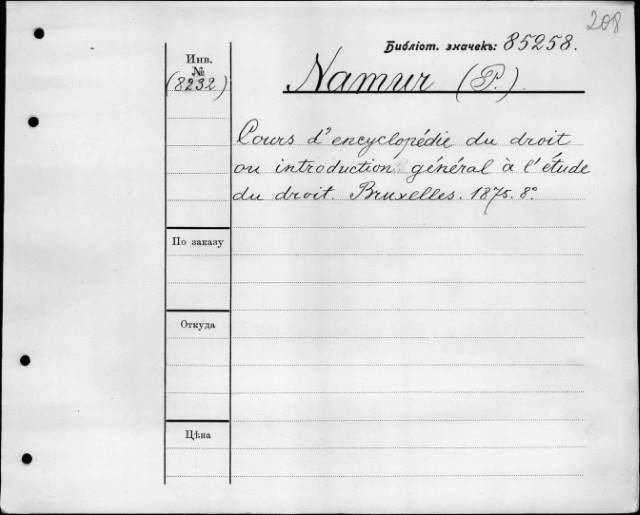 208
Библіот. значекъ: 85258.
Инв.
№
(8232)
Namur (P.).
Cours d'encyclopédie du droit
ou introduction général à l'étude
du droit. Bruxelles. 1875. 8º.
По заказу
Откуда
Цѣна